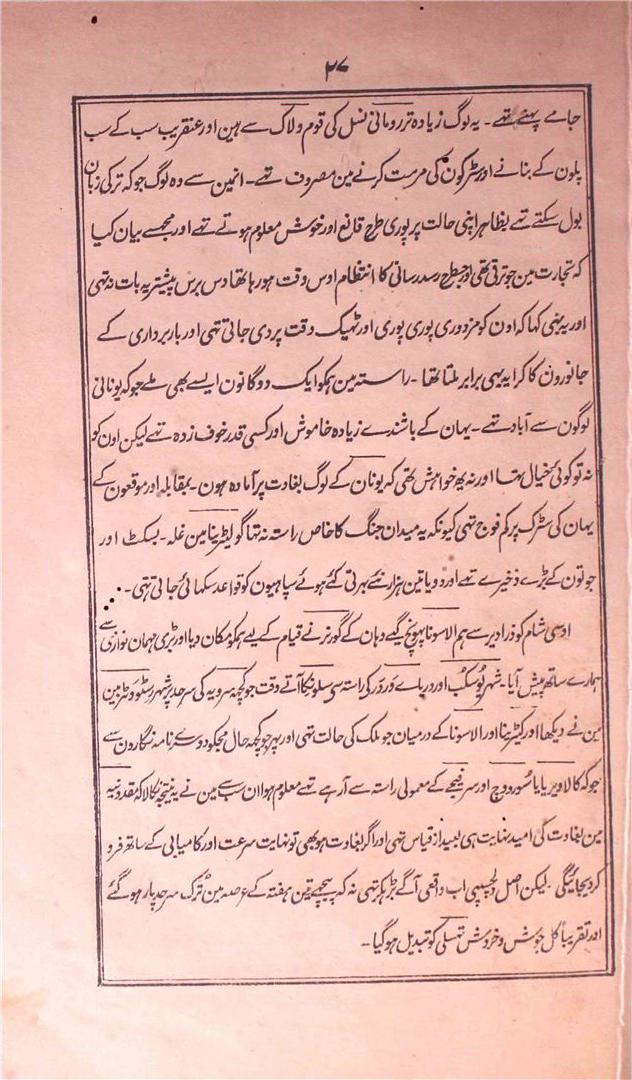 ۲۷
جامے پہنے تھے۔ یہ لوگ زیادہ تر رومانی نسل کی قوم ولاک سے ہین اور عنقریب سب کے سب
پلون کے بنانے اور سڑکون کی مرمت کرنے مین مصروف تھے۔ انمین سے وہ لوگ جو کہ ترکی زبان
بول سکتے تہے بظاہر اپنی حالت پر پوری طرح قانع اور خوش معلوم ہوتے تہے اور مجہسے بیان کیا
کہ تجارت مین جو ترقی تھی اور جسطرح رسد رسانی کا انتظام اوس وقت ہو رہا تھا دس برس پیشتر یہ بات نہ تہی
اور یہ بہی کہا کہ اون کو مزدوری پوری پوری اور ٹھیک وقت پر دی جاتی تہی اور بار برداری کے
جانورون کا کرایہ بہی برابر ملتا تھا۔ راستہ مین ہمکو ایک دو گانون ایسے بھی ملے جو کہ یونانی
لوگون سے آباد تھے۔ یہان کے باشندے زیادہ خاموش اور کسی قدر خوف زدہ تہے لیکن اون کو
نہ تو کوئی خیال تہا اور نہ یہ خواہش تھی کہ یونان کے لوگ بغاوت پر آمادہ ہون۔ بمقابلہ اور موقعون کے
یہان کی سڑک پر کم فوج تہی کیونکہ یہ میدان جنگ کا خاص راستہ نہ تہا گو کیٹرینا مین غلہ۔ بسکٹ اور
جوتون کے بڑے ذخیرے تہے اور دو یا تین ہزار نئے بہرتی کئے ہوئے سپاہیون کو قواعد سکہائی جاتی تہی۔
اوسی شام کو ذرا دیر سے ہم الاسونا پہونچ گیے وہان کے گورنر نے قیام کے لیے ہمکو مکان دیا اور بڑی مہمان نوازی سے
ہمارے ساتھ پیش آیا۔ شہر یوسکب اور دریاے وردر کی راستہ سے سلونیکا آتے وقت جو کچہہ سرویہ کی سرحد پر شہر رسٹووٹز مین
مین نے دیکھا اور کیٹرینا اور الاسونا کے درمیان جو ملک کی حالت تہی اور پہر جو کچہہ حال مجکو دوسرے نامہ نگارون سے
جو کہ کالاویریا یا سورووچ اور سرفیجے کے معمولی راستہ سے آرہے تہے معلوم ہوا ان سب سے مین نے یہ نتیجہ نکالا کہ مقدونیہ
مین بغاوت کی امید نہایت ہی بعید از قیاس تہی اور اگر بغاوت ہو بھی تو نہایت سرعت اور کامیابی کے ساتھ فرو
کر دیجائیگی۔ لیکن اصل دلچسپی اب واقعی آگے بڑہکر تہی نہ کہ پیچہے تین ہفتہ کے عرصہ مین ترک سرحد پار ہو گئے
اور تقریباً کل جوش و خروش تہسلی کو تبدیل ہو گیا۔